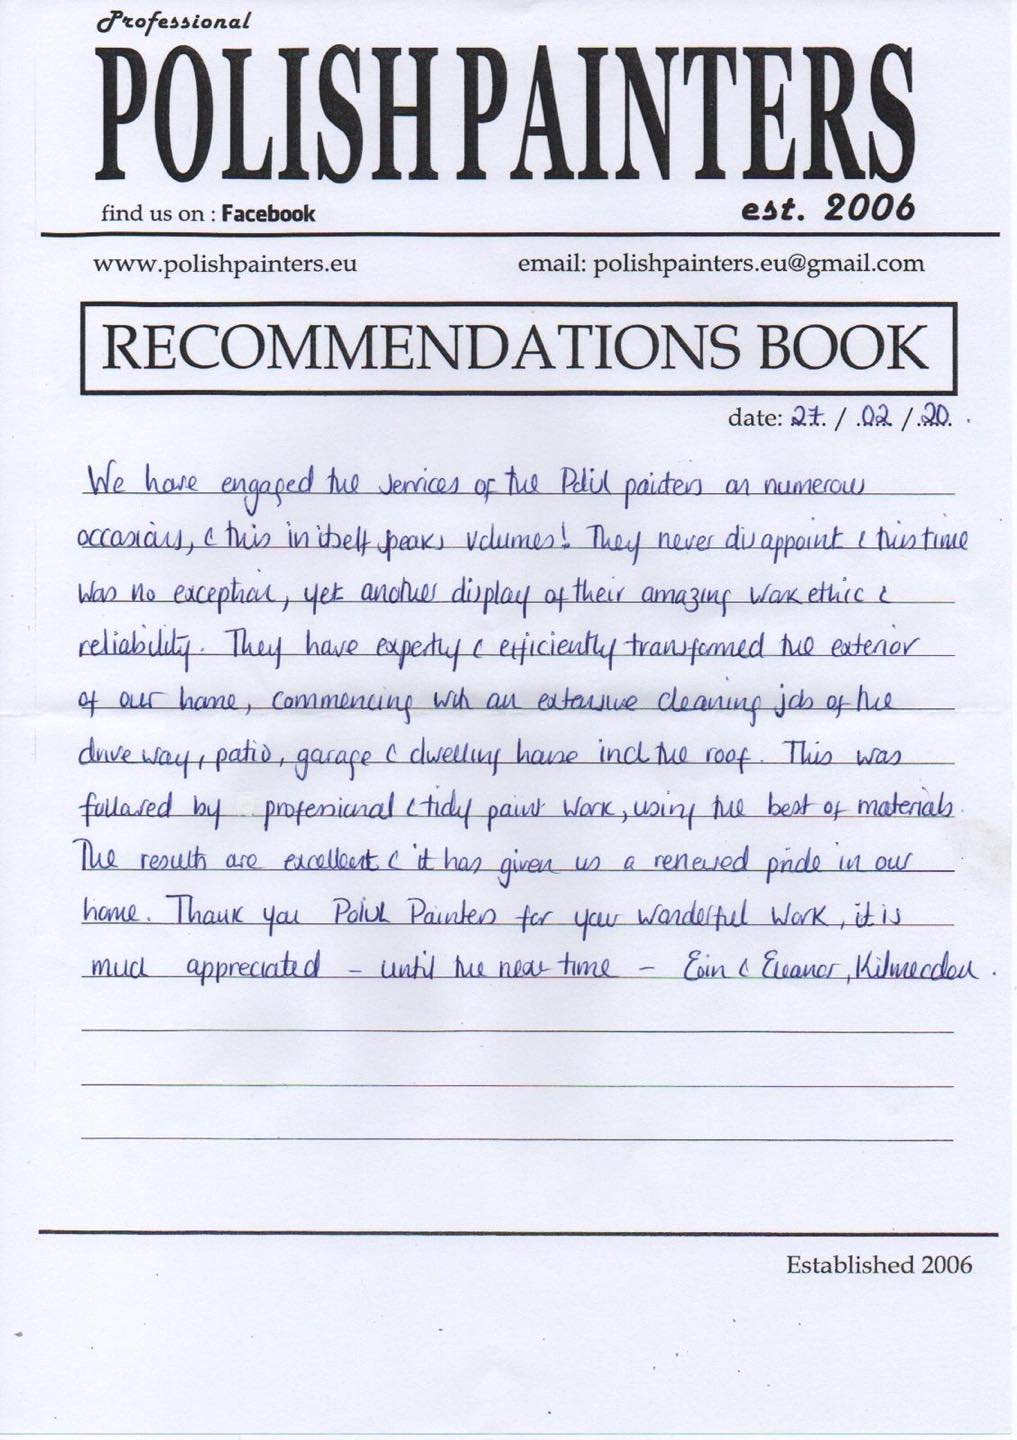 Professional
POLISH PAINTERS
find us on : Facebook
est. 2006
www.polishpainters.eu
email: polishpainters.eu@gmail.com
RECOMMENDATIONS BOOK
date: 27. / .02 / .20. .
We have engaged the services of the Polish painters on numerous
occasions, & this in itself speaks volumes! They never disappoint & this time
was no exception, yet another display of their amazing work ethic &
reliability. They have expertly & efficiently transformed the exterior
of our home, commencing with an extensive cleaning job of the
driveway, patio, garage & dwelling house incl the roof. This was
followed by professional & tidy paint work, using the best of materials.
The results are excellent & it has given us a renewed pride in our
home. Thank you Polish Painters for your wonderful work, it is
much appreciated - until the next time - Eoin & Eleanor, Kilmeaden.
Established 2006